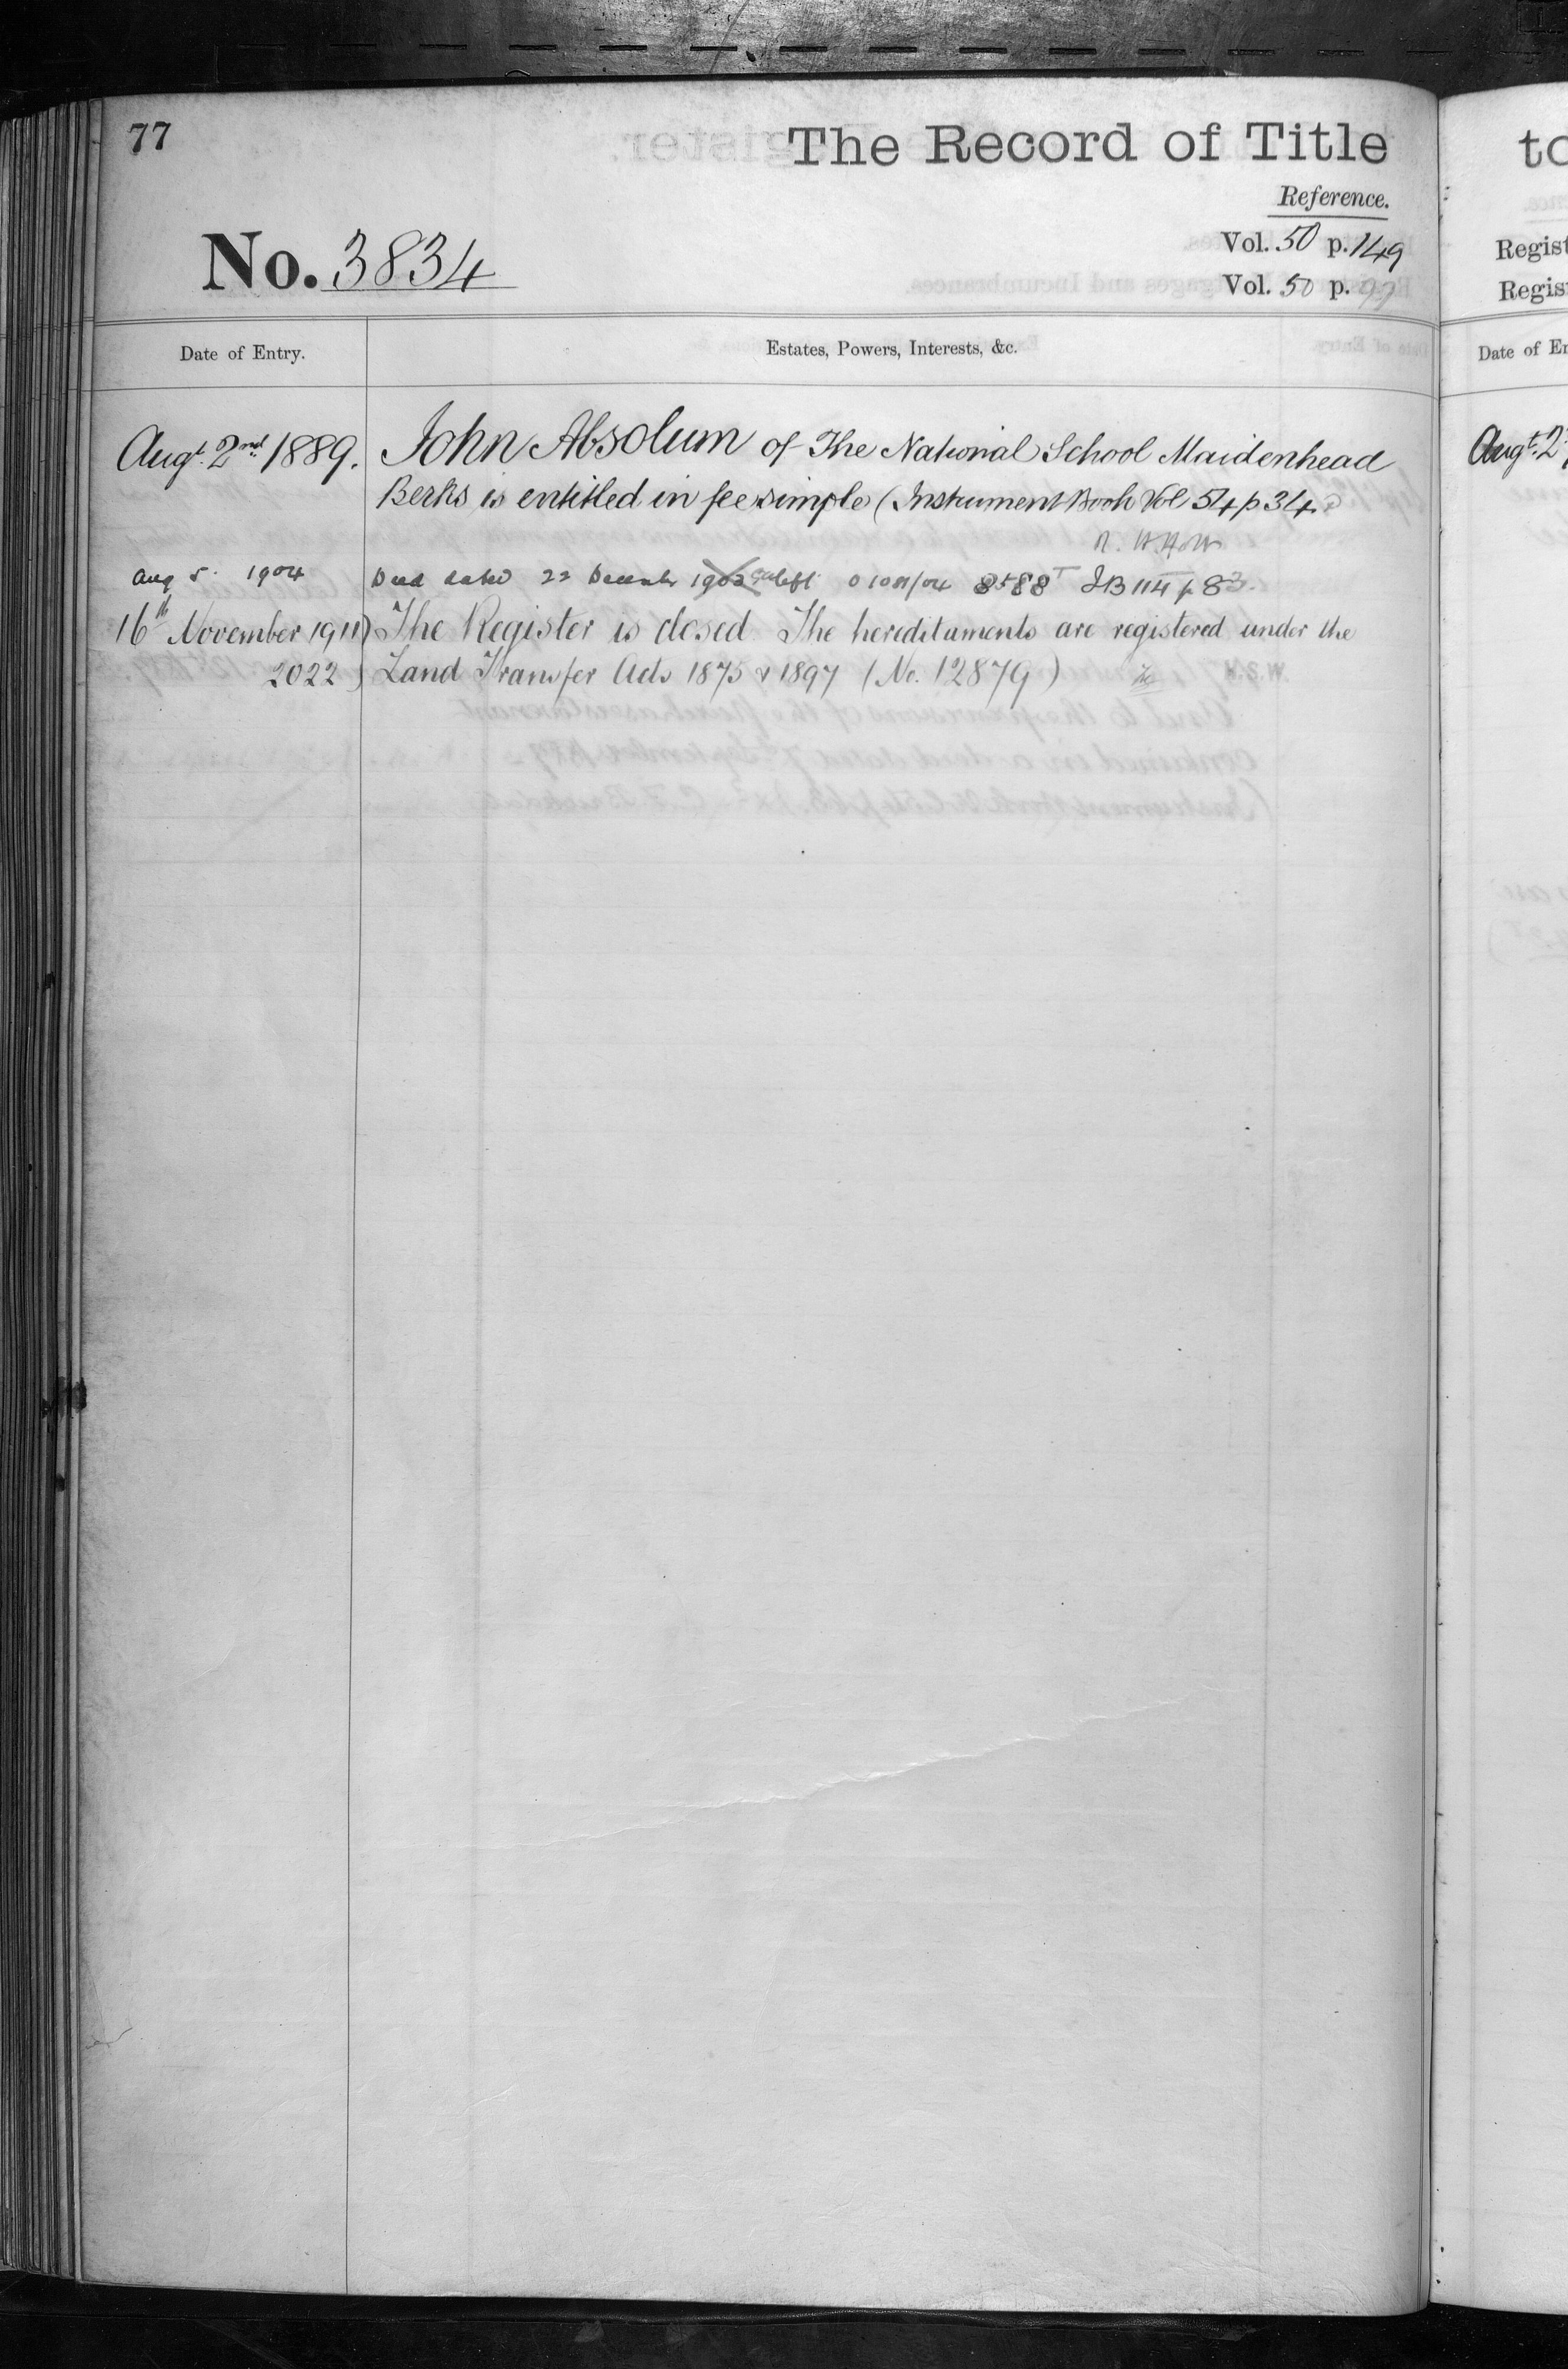 77
The Record of Title
Reference.
No. 3834
Vol. 50 p. 149
Vol. 50 p. 97
Date of Entry.
Estates, Powers, Interests, &c.
Augt. 2nd 1889.
John Absolum of The National School Maidenhead
Berks is entitled in fee simple (Instrument Book Vol 54 p 34.
Aug 5. 1904
Deed dated 22 December 1902 left 8588 I B 114 p 83.
16th November 1911)
The Register is closed The hereditaments are registered under the
2022)
Land Transfer Acts 1875 & 1897 (No. 12879)
to
Regist
Regist
Date of En
Augt. 2